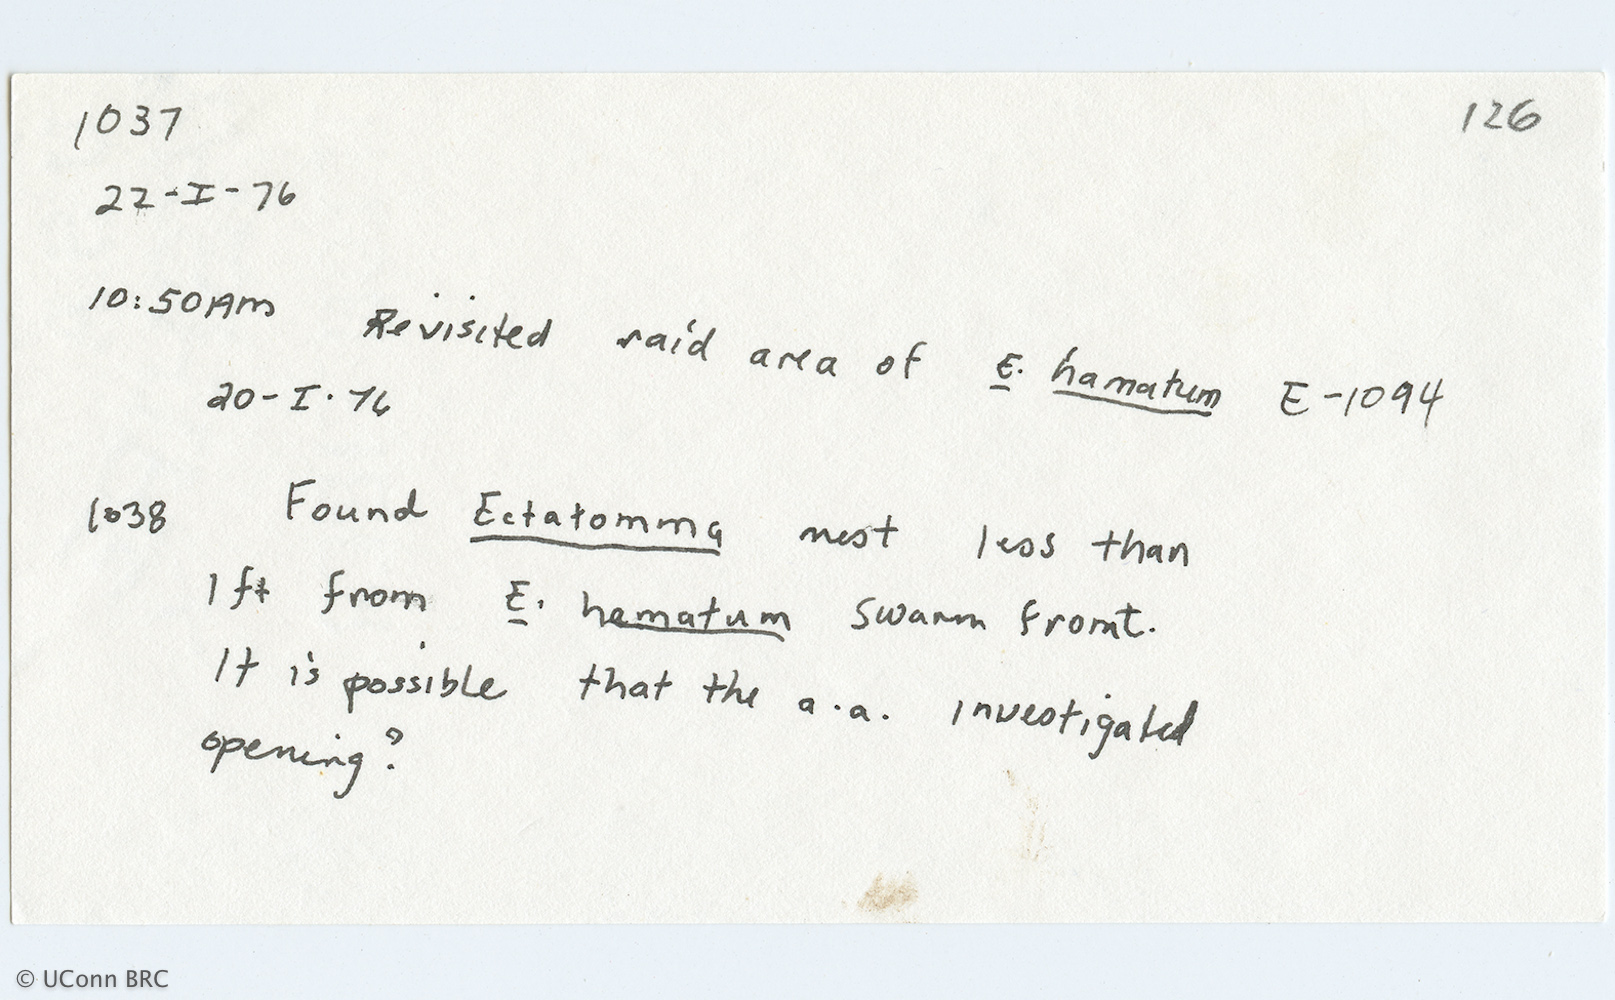 1037 126
22-I-76
10:50 Am Revisited raid area of E. hamatum E-1094
20-I-76
1038 Found Ectatomma nest less than
1 ft from E. hamatum swarm front.
It is possible that the a.a. investigated
opening?
© UConn BRC